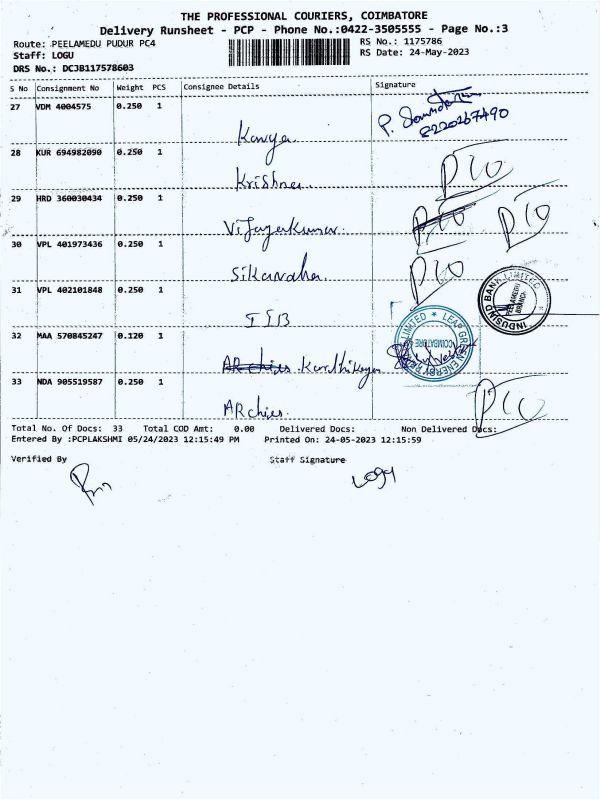 THE PROFESSIONAL COURIERS, COIMBATORE
Delivery Runsheet - PCP - Phone No.:0422-3505555 - Page No.:3
Route: PEELAMEDU PUDUR PC4
RS No.: 1175786
Staff: LOGU
RS Date: 24-May-2023
DRS No.: DCJB117578603
S No Consignment No Weight PCS Consignee Details Signature
27 VDM 4004575 0.250 1
P.
8220267490
Kavya
28 KUR 694982090 0.250 1
Krishna
D/O
29 HRD 360030434 0.250 1
Vijayakumar.
D/O D/O
30 VPL 401973436 0.250 1
Sikandha
D/O
31 VPL 402101848 0.250 1
IIB
INDUSIND BANK LIMITED
PEELAMEDU
BRANCH
32 MAA 570845247 0.120 1
ARchies Karthikeyan
LEAP GREEN ENERGY LIMITED
COIMBATORE
33 NDA 905519587 0.250 1
ARchies.
D/O
Total No. Of Docs: 33 Total COD Amt: 0.00 Delivered Docs: Non Delivered Docs:
Entered By :PCPLAKSHMI 05/24/2023 12:15:49 PM Printed On: 24-05-2023 12:15:59
Verified By Staff Signature
Logu